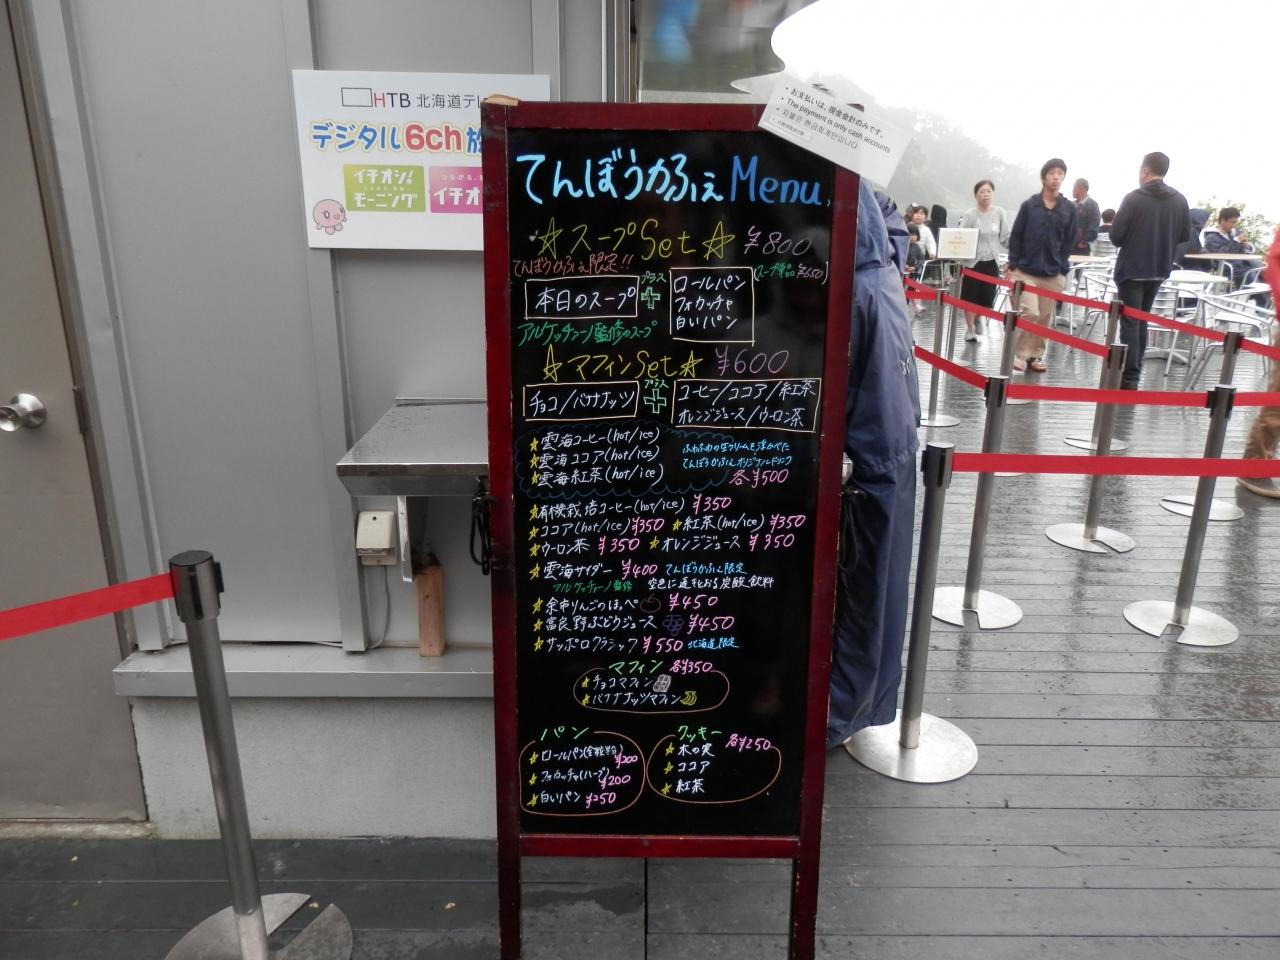 HTB 北海道テレ
デジタル6ch放
イチオシ!
モーニング
イチオ
・お支払いは、現金会計のみです。
・The payment is only cash accounts
・지불은 현금회계만입니다
てんぼうかふぇMenu
☆スープSet☆ ¥800
てんぼうかふぇ限定!!
(スープ単品¥650)
本日のスープ
プラス
+
ロールパン
フォカッチャ
白いパン
アルケッチァーノ監修のスープ
☆マフィンSet☆ ¥600
チョコ/バナナナッツ
プラス
+
コーヒー/ココア/紅茶
オレンジジュース/ウーロン茶
☆雲海コーヒー(hot/ice)
☆雲海ココア(hot/ice)
☆雲海紅茶(hot/ice)
ふわふわの生クリームを浮かべた
てんぼうかふぇオリジナルドリンク
各¥500
☆有機栽培コーヒー(hot/ice) ¥350
☆ココア(hot/ice)¥350 ☆紅茶(hot/ice)¥350
☆ウーロン茶 ¥350 ☆オレンジジュース ¥350
☆雲海サイダー ¥400 てんぼうかふぇ限定
アルケッチァーノ監修 空色に透きとおる炭酸飲料
☆余市りんごのほっぺ ¥450
☆富良野ぶどうジュース ¥450
☆サッポロクラシック ¥550 北海道限定
マフィン 各¥350
☆チョコマフィン
☆バナナナッツマフィン
パン
☆ロールパン ¥200
☆フォカッチャ(ハーブ) ¥200
☆白いパン ¥250
クッキー 各¥250
☆木の実
☆ココア
☆紅茶